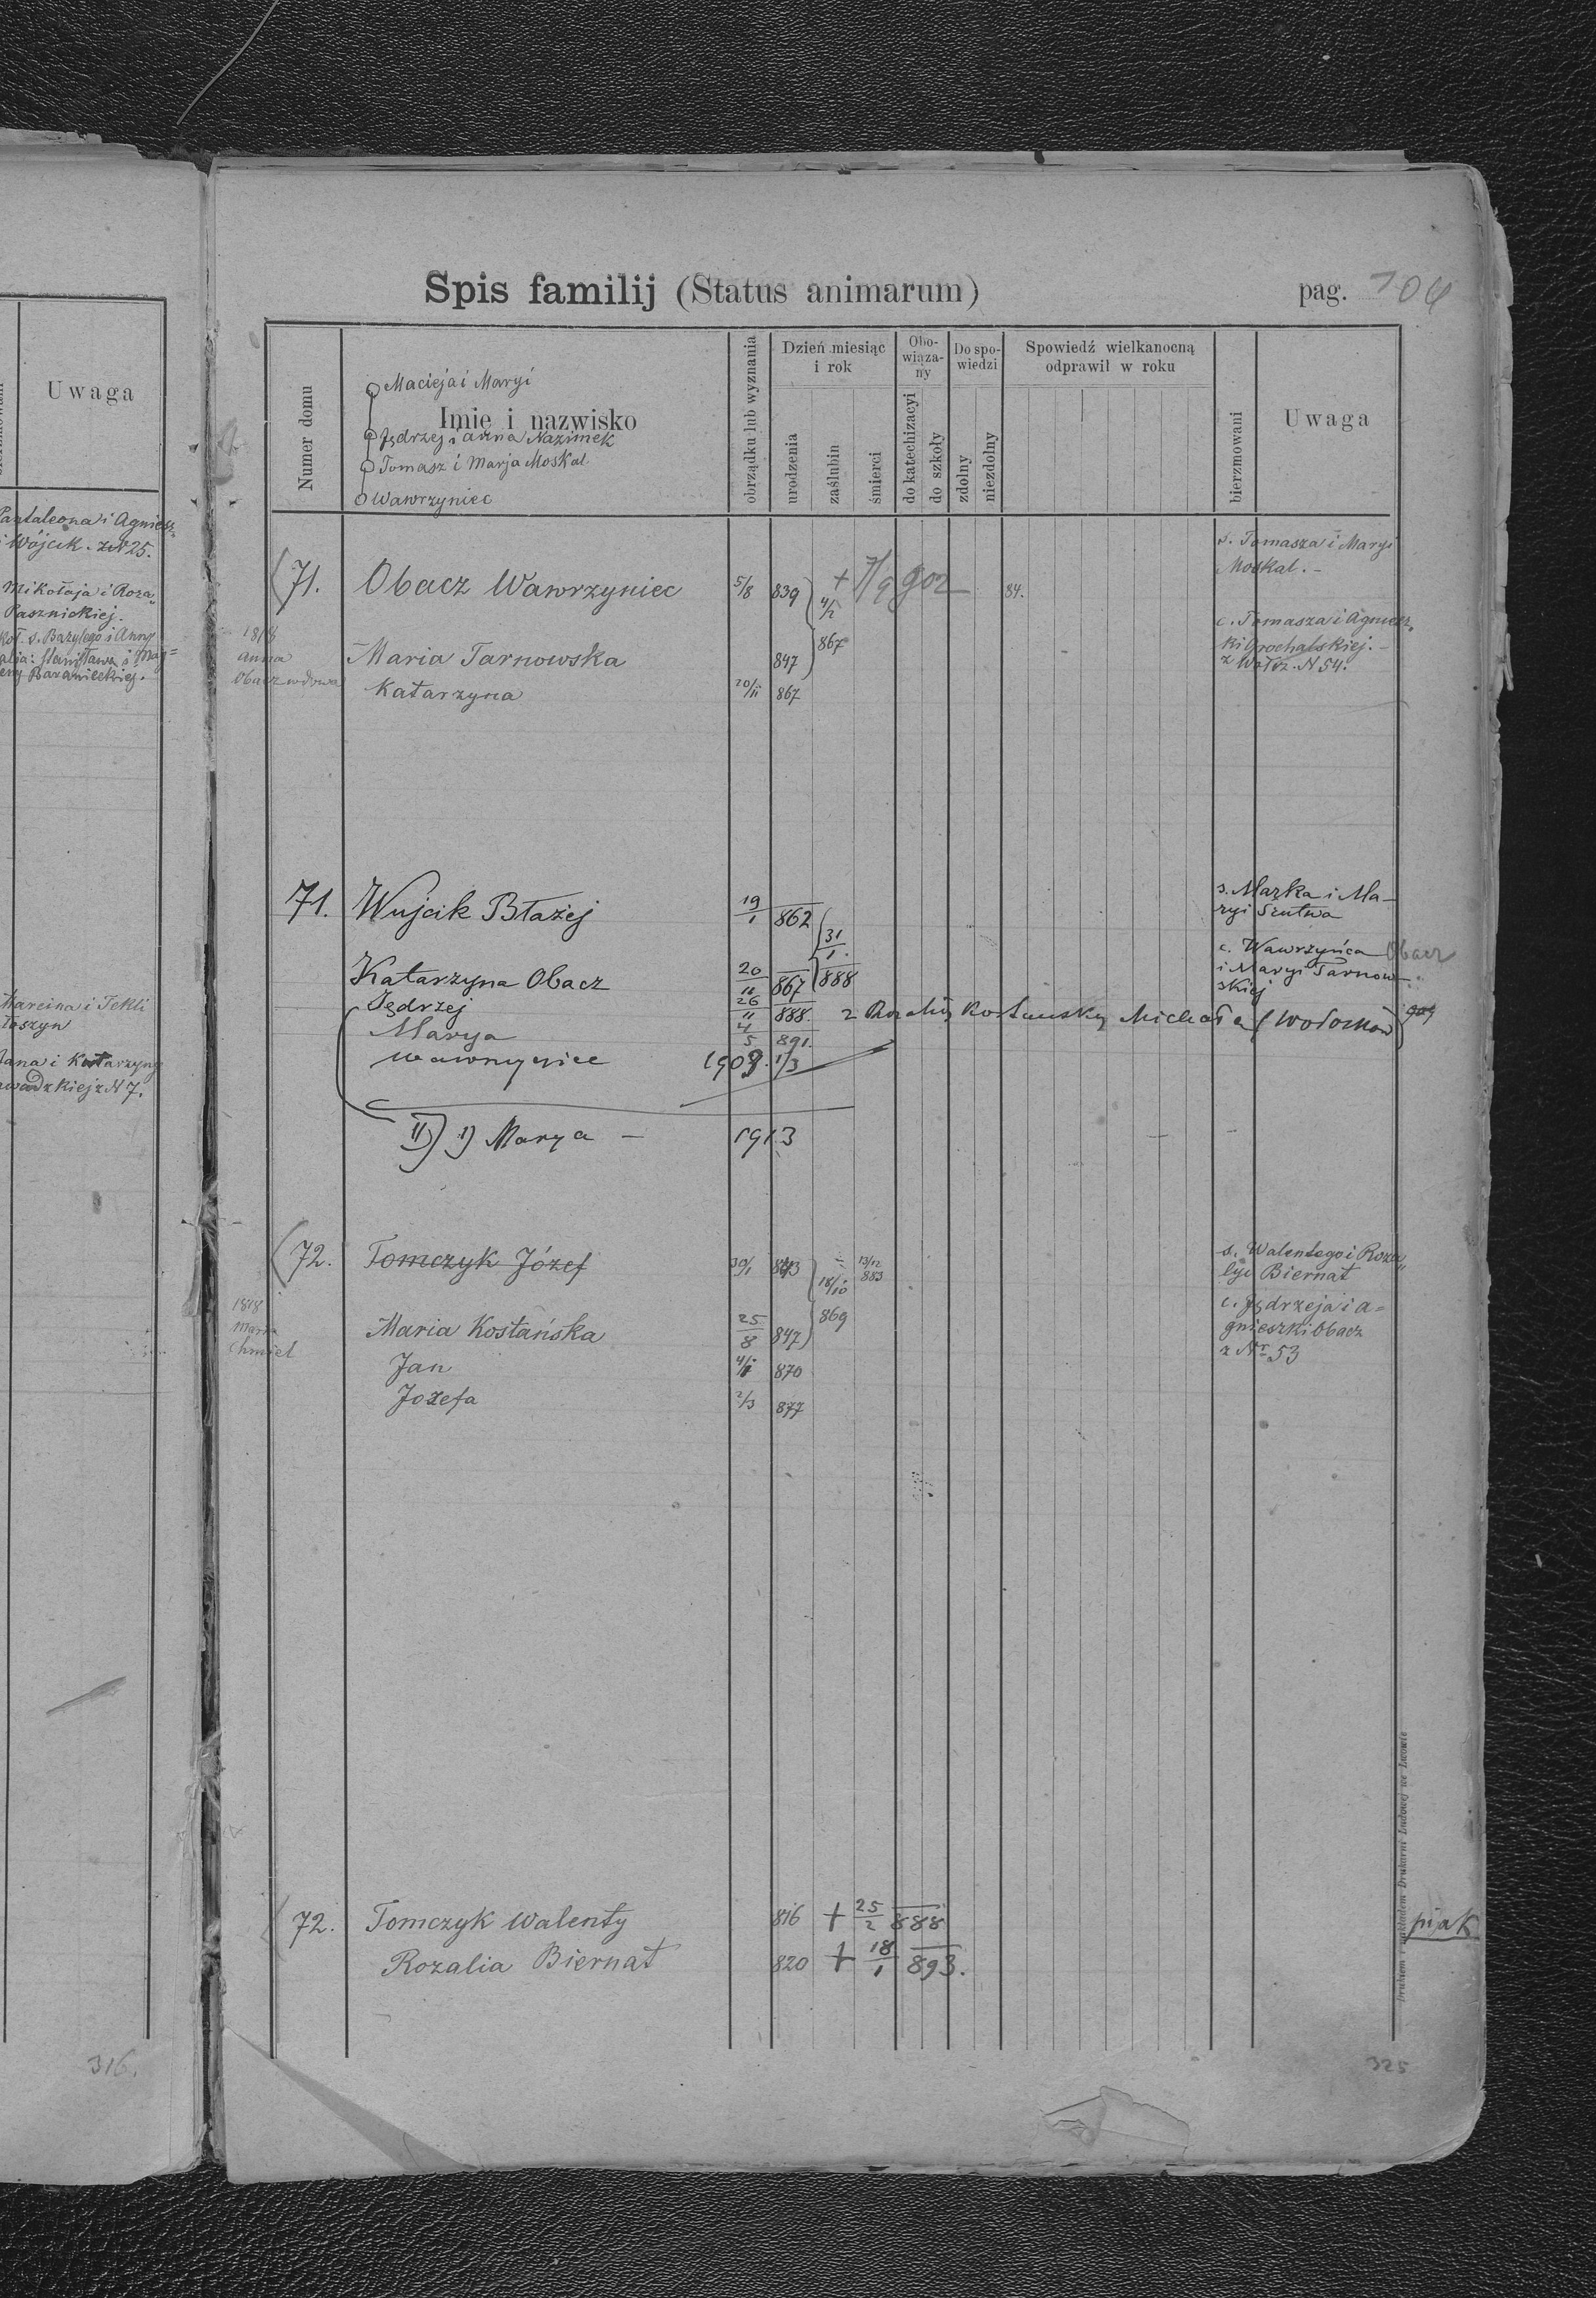 Uwaga
Pantaleona i Agniesz„
i Wójcik. z N 25.
Mikołaja i Roza„
Pasznickiej.
Kat. s. Bazylego i Anny
alia: Stanisława i Mag=
eny Baranieckiej.
Marcina i Tekli
łoszyn
Jana i Katarzyny
awadzkiej z N 7.
316.
Spis familij (Status animarum)
pag. 106
Numer domu
Macieja i Maryi
Imie i nazwisko
Jędrzej i Anna Nazimek
Tomasz i Marja Moskal
Wawrzyniec
obrządku lub wyznania
Dzień miesiąc i rok
urodzenia
zaślubin
śmierci
Obo-wiąza-ny
do katechizacyi
do szkoły
Do spo-wiedzi
zdolny
niezdolny
Spowiedź wielkanocną odprawił w roku
bierzmowani
Uwaga
71. Obacz Wawrzyniec 5/8 839 + 7/9 902 84. s. Tomasza i Maryi
Moskal. -
4/2
867
1818
Anna
Obacz wdowa
Maria Tarnowska 847 c. Tomasza i Agniesz„
ki Grochalskiej. -
z Wołdz. N 54.
Katarzyna 20/11 867
71. Wujcik Błażej 19/1 862 s. Marka i Ma-
ryi Szutwa
31/1 888
Katarzyna Obacz 20/11 867 c. Wawrzyńca Obacz
i Maryi Tarnow
skiej
Jędrzej 26/11 888. z Rozalią Kostańską Michała (Wołodków) 909
Marya 4/5 891.
Wawrzyniec 1909. 1/3
II) 1) Marya - 1913
72. Tomczyk Józef 30/1 843 13/12 883 s. Walentego i Roza„
lyi Biernat
18/10
869
1818
Maria
Chmiel
Maria Kostańska 25/8 847 c. Jędrzeja i A=
gnieszki Obacz
z Nr 53
Jan 870
Jozefa 2/3 877
72. Tomczyk Walenty 816 + 25/2 888 pijak
Rozalia Biernat 820 + 18/1 893.
Drukiem i nakładem Drukarni Ludowej we Lwowie
325